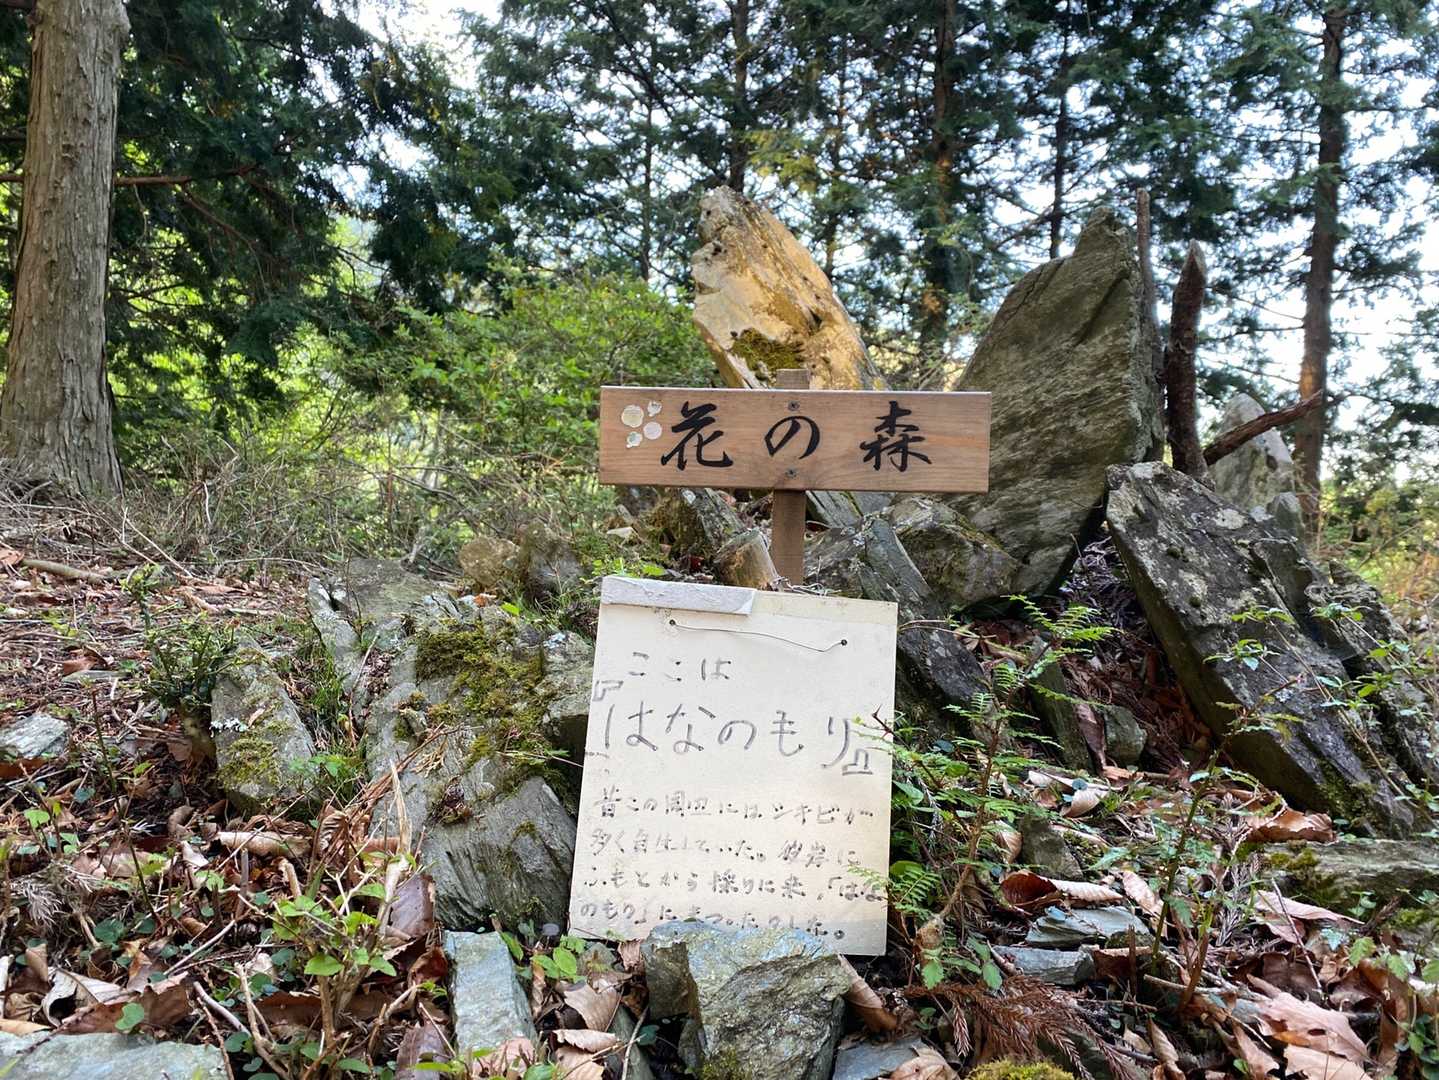 花の森
ここは
『はなのもり』
昔この周辺にはシキビが
多く自生していた。彼岸に
ふもとから採りに来、「はな
のもり」にまつったりした。